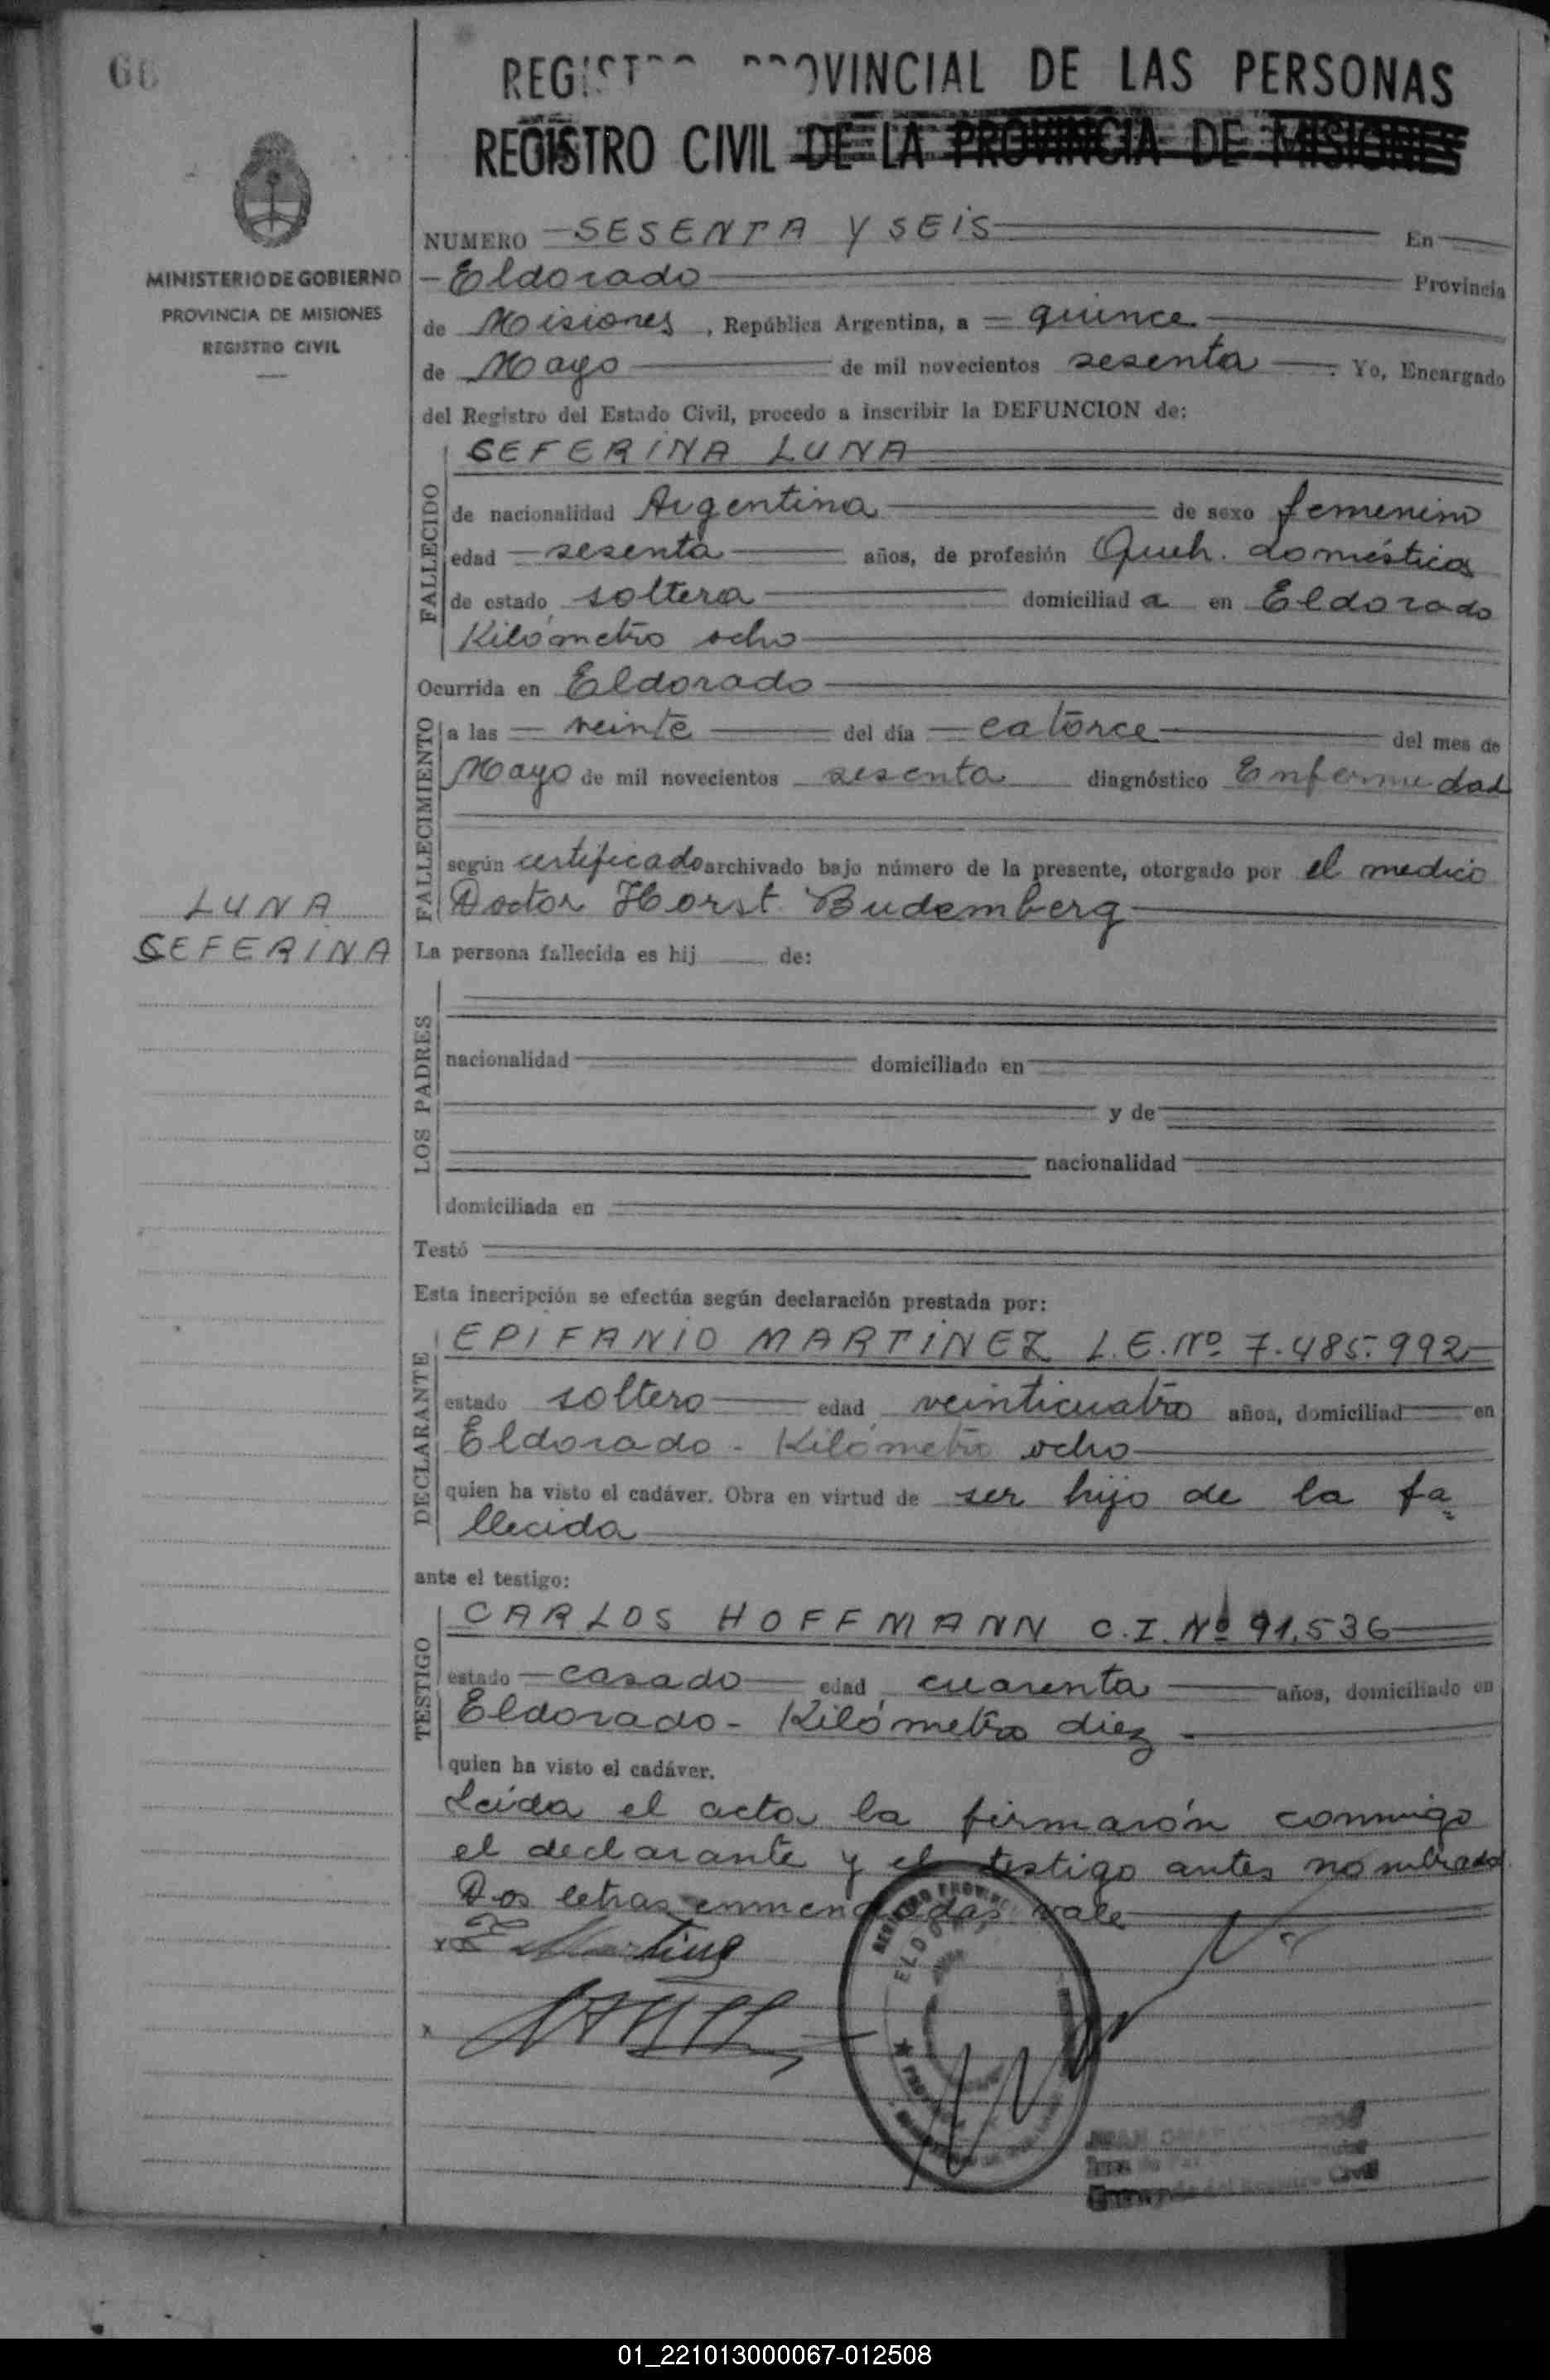 66
REGISTRO PROVINCIAL DE LAS PERSONAS
REGISTRO CIVIL DE LA PROVINCIA DE MISIONES
MINISTERIO DE GOBIERNO
PROVINCIA DE MISIONES
REGISTRO CIVIL
NUMERO SESENTA Y SEIS En
Eldorado Provincia
de Misiones, República Argentina, a quince
de Mayo de mil novecientos sesenta. Yo, Encargado
del Registro del Estado Civil, procedo a inscribir la DEFUNCION de:
FALLECIDO
SEFERINA LUNA
de nacionalidad Argentina de sexo femenino
edad sesenta años, de profesión Queh. domésticos
de estado soltera domiciliada en Eldorado
Kilómetro ocho
Ocurrida en Eldorado
FALLECIMIENTO
a las veinte del día catorce del mes de
Mayo de mil novecientos sesenta diagnóstico Enfermedad
según certificado archivado bajo número de la presente, otorgado por el medico
Doctor Horst Budemberg
LUNA
SEFERINA
La persona fallecida es hij de:
LOS PADRES
nacionalidad domiciliado en
y de
nacionalidad
domiciliada en
Testó
Esta inscripción se efectúa según declaración prestada por:
DECLARANTE
EPIFANIO MARTINEZ L.E.Nº 7.485.992
estado soltero edad veinticuatro años, domiciliad en
Eldorado - Kilómetro ocho
quien ha visto el cadáver. Obra en virtud de ser hijo de la fa=
llecida
ante el testigo:
TESTIGO
CARLOS HOFFMANN C.I. Nº 91.536
estado casado edad cuarenta años, domiciliado en
Eldorado - Kilómetro diez -
quien ha visto el cadáver.
Leída el acta la firmarón conmigo
el declarante y el testigo antes nombrado
Dos letras enmendadas vale
E Martinez
ELDO
Registro Civil
01_221013000067-012508